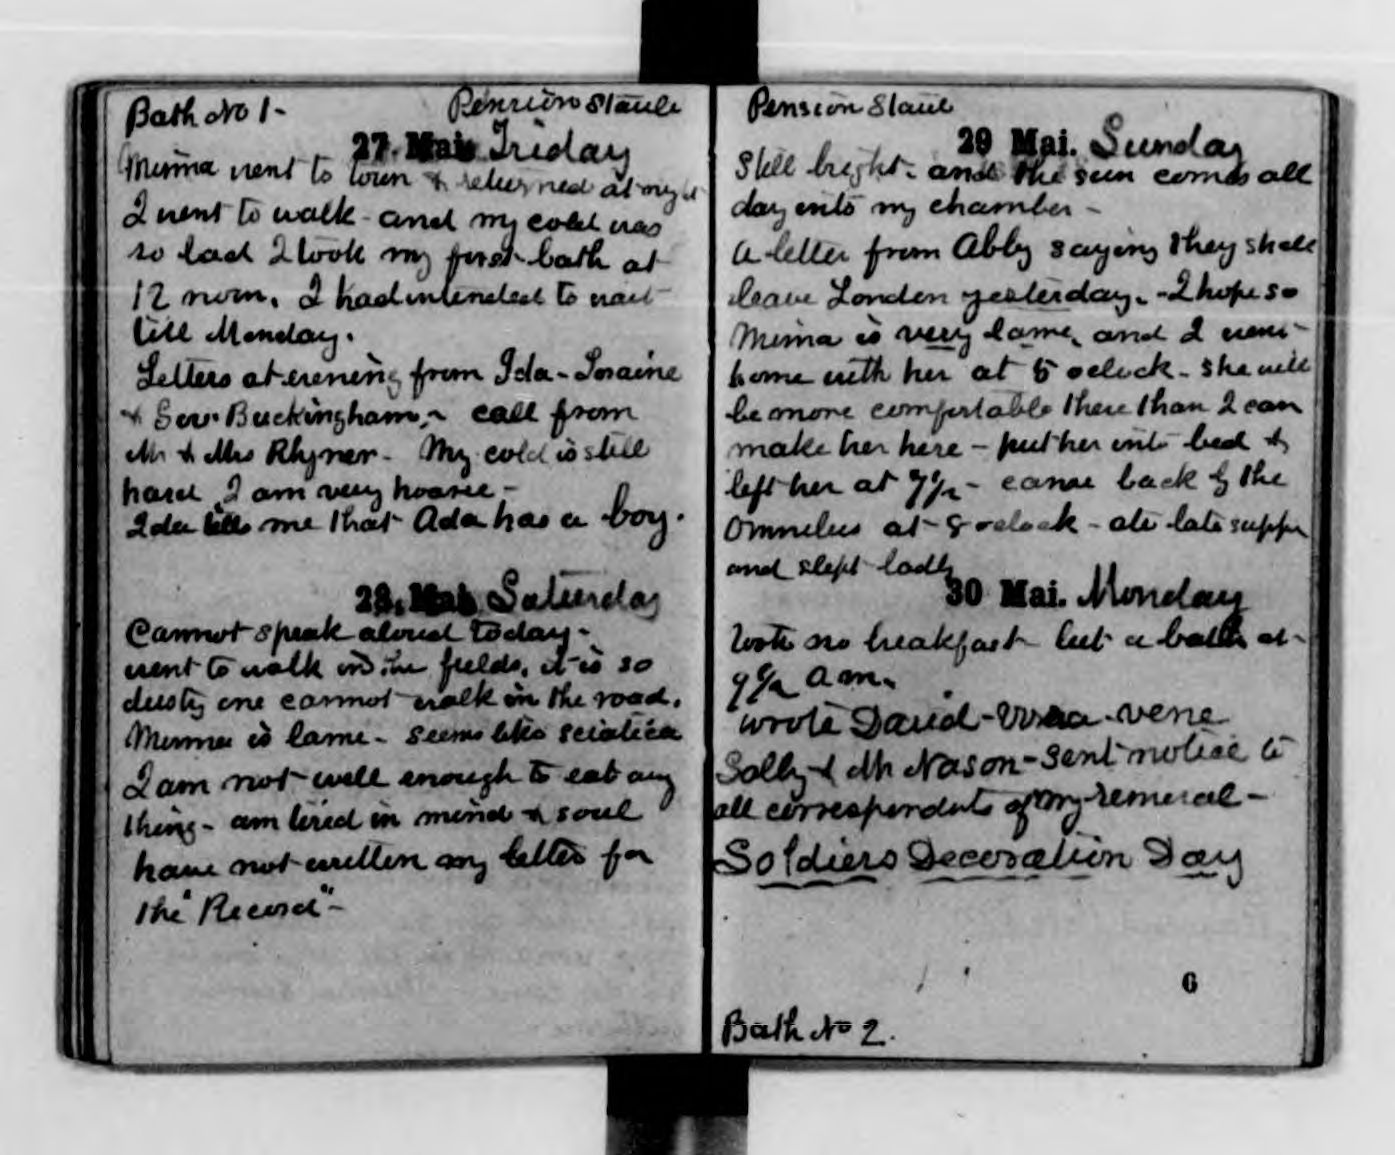 Bath No 1 - Pension Staub
27. Mai. Friday
Minna went to town & returned at night
I went to walk - and my cold was
so bad I took my first bath at
12 noon. I had intended to wait
till Monday.
Letters at evening from Ida - Loraine
& Gov. Buckingham, - call from
Mr & Mrs Rhyner - My cold is still
hard I am very hoarse -
Ida tells me that Ada has a boy.
28. Mai. Saturday
Cannot speak aloud today -
went to walk in the fields, it is so
dusty one cannot walk in the road.
Minna is lame - seems like sciatica
I am not well enough to eat any
thing - am tired in mind & soul
have not written my letter for
the "Record" -
Pension Staub
29 Mai. Sunday
Still bright - and the sun comes all
day into my chamber -
a letter from Abby saying they shall
leave London yesterday. - I hope so
Minna is very lame, and I went
home with her at 5 oclock - she will
be more comfortable there than I can
make her here - put her into bed &
left her at 7½ - came back by the
Omnibus at 8 oclock - ate late supper
and slept badly
30 Mai. Monday
took no breakfast but a bath at
9½ a m.
wrote David - - vene
Sally & Mr Nason - sent notice to
all correspondents of my removal -
Soldiers Decoration Day
6
Bath No 2.